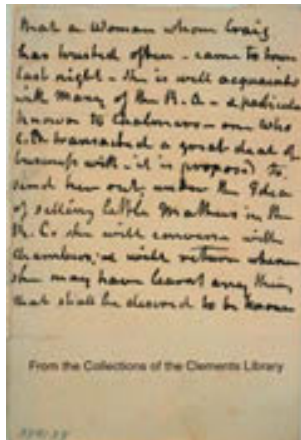 that a Woman whom Craig
has trusted often - came to town
last night - She is well acquainted
with many of the R. A - a pedlar
known to Chalmers - one who
transacted a great deal of
business with - it is proposed to
send her out, under the Idea
of selling little Matters in the
R. C. she will converse with
Chambers; & will return when
she may have learnt any thing
that shall be desired to be known
From the Collections of the Clements Library